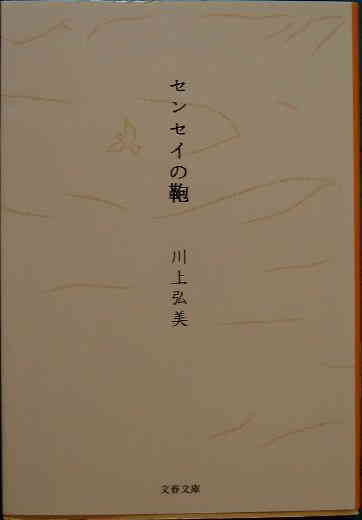 センセイの鞄
川上弘美
文春文庫